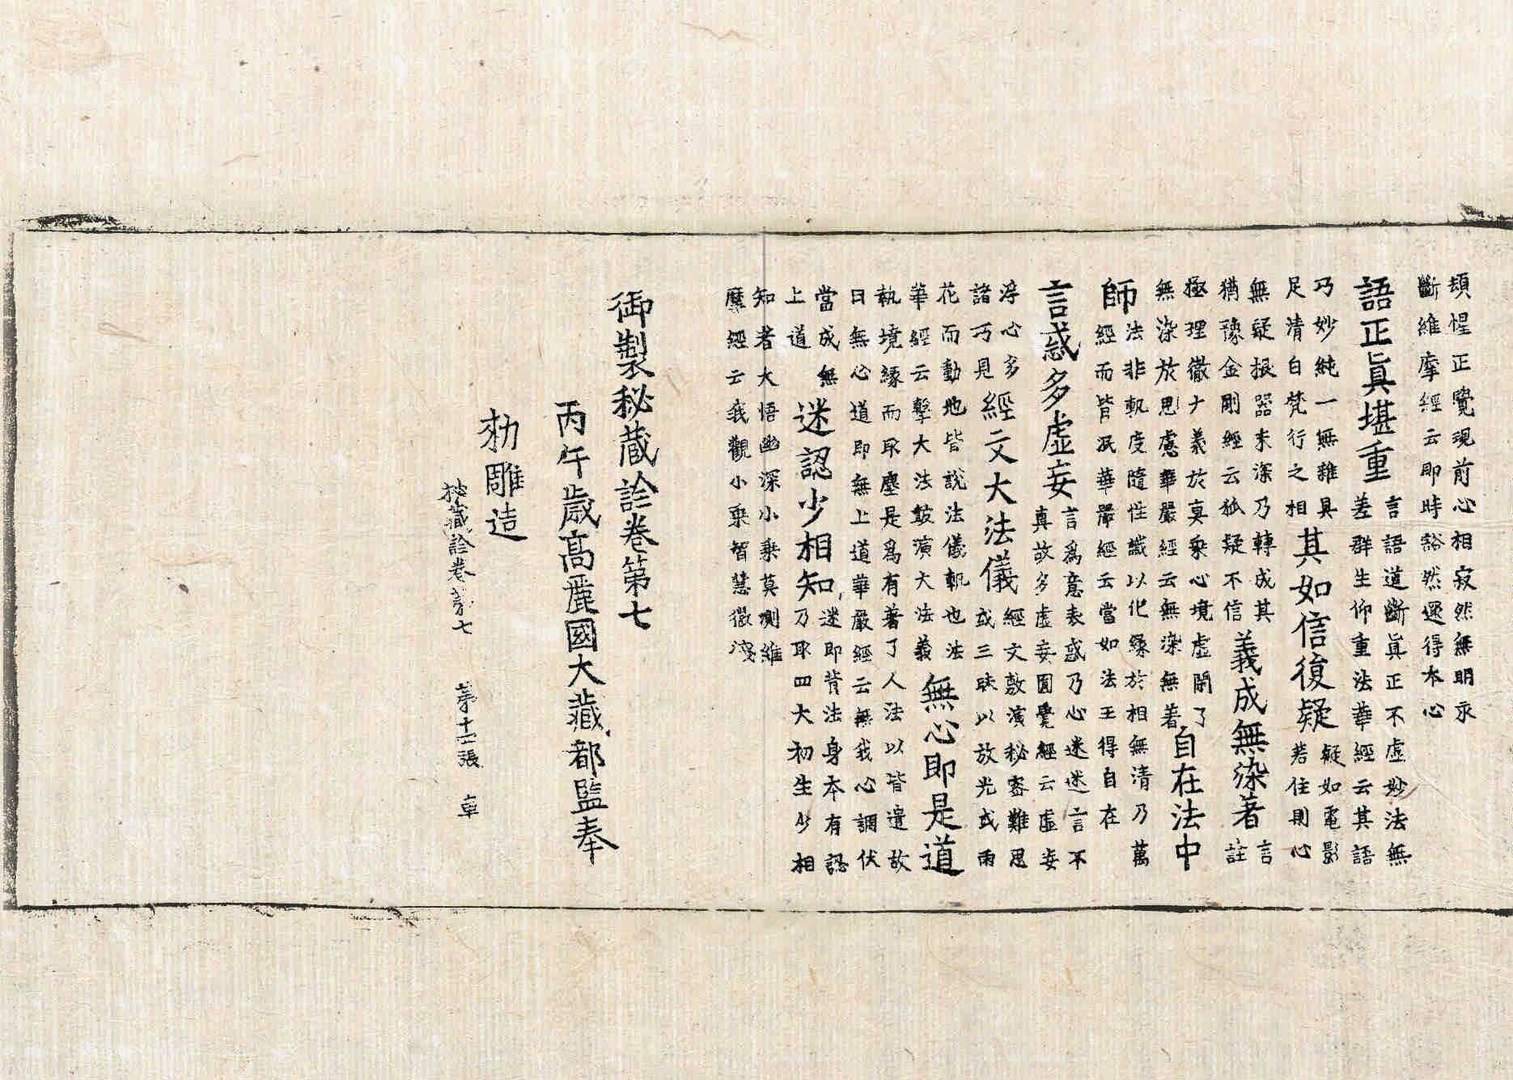 頓惺正覺現前心相寂然無明永
斷維摩經云即時豁然還得本心
語正眞堪重
言語道斷眞正不虛妙法無
差群生仰重法華經云其語
巧妙純一無雜具
足清白梵行之相
其如信復疑
疑如電影
若住則心
無疑根器未深乃轉成其
猶豫金剛經云狐疑不信
義成無染著
言
註
極理徹十義於眞乘心境虛閑了
無染於思慮華嚴經云無染無著
自在法中
師
法非軌度隨性識以化緣於相無清乃萬
經而皆泯華嚴經云當如法王得自在
言惑多虛妄
言爲意表惑乃心迷迷言不
眞故多虛妄圓覺經云虛妄
浮心多
諸巧見
經文大法儀
經文敷演秘密難思
或三昧以放光或雨
花而動地皆說法儀軌也法
華經云擊大法鼓演大法義
無心即是道
執境緣而取塵是爲有著了人法以皆遣故
曰無心道即無上道華嚴經云無我心調伏
當成無
上道
迷認少相知
迷即背法身本有認
乃取四大初生少相
知者大悟幽深小乘莫測維
摩經云我觀小乘智慧微淺
御製秘藏詮卷第七
丙午歲高麗國大藏都監奉
勑雕造
秘藏詮卷第七　第十二張　車